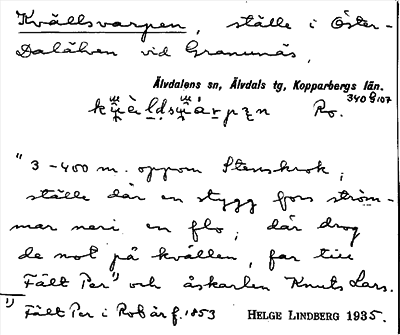 Kvällsvarpen, ställe i Öster-
Dalälven vid Granunäs.
Älvdalens sn, Älvdals tg, Kopparbergs län.
340 G 107
Ro.
"3-400 m. oppom Stenskrok,
ställe där en stygg fors ström-
mar neri en flo, där drog
de not på kvällen, far till
Fält Per¹⁾ och åskarlen Knuts Lars.
¹⁾ Fält Per i Rot är f. 1853
HELGE LINDBERG 1935.